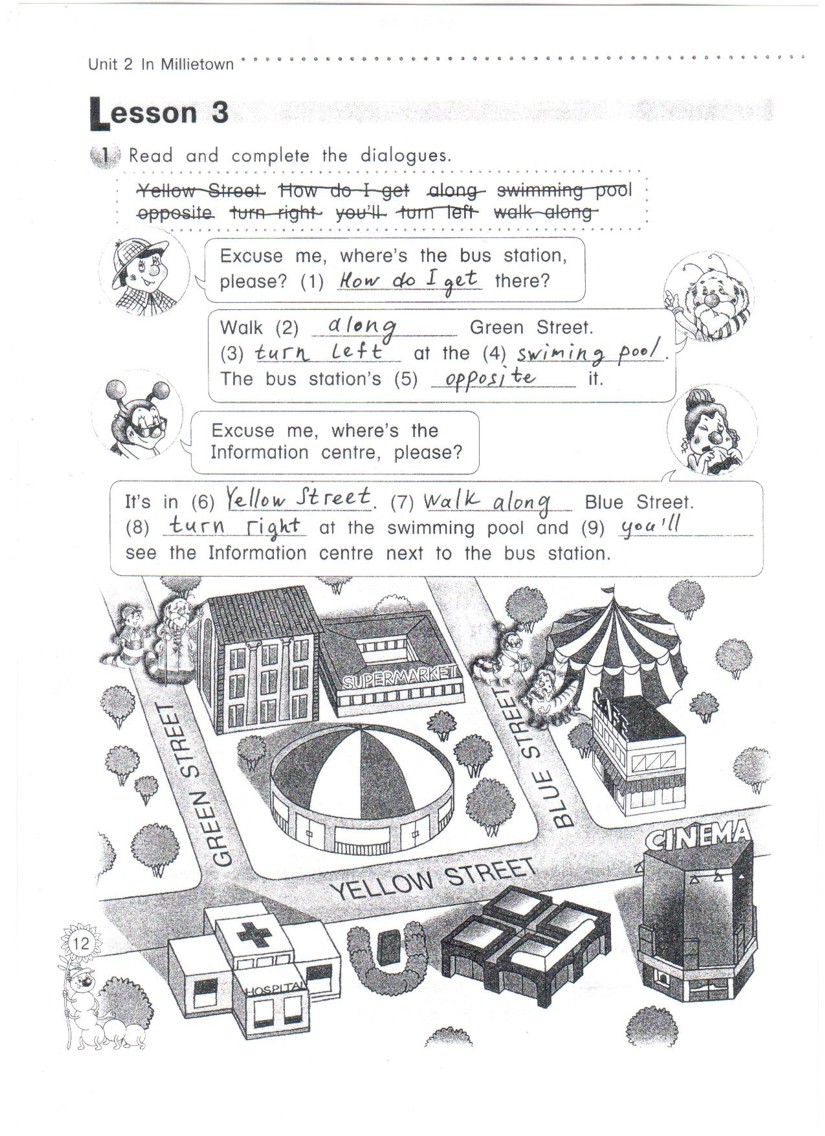 Unit 2 In Millietown
Lesson 3
1 Read and complete the dialogues.
Yellow Street How do I get along swimming pool
opposite turn right you'll turn left walk along
Excuse me, where's the bus station,
please? (1) How do I get there?
Walk (2) along Green Street.
(3) turn left at the (4) swiming pool.
The bus station's (5) opposite it.
Excuse me, where's the
Information centre, please?
It's in (6) Yellow Street. (7) Walk along Blue Street.
(8) turn right at the swimming pool and (9) you'll
see the Information centre next to the bus station.
SUPERMARKET
CAFE
GREEN STREET
BLUE STREET
CINEMA
YELLOW STREET
12
HOSPITAL